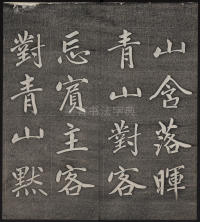 山含落暉
青山對客
忘賓主客
對青山默